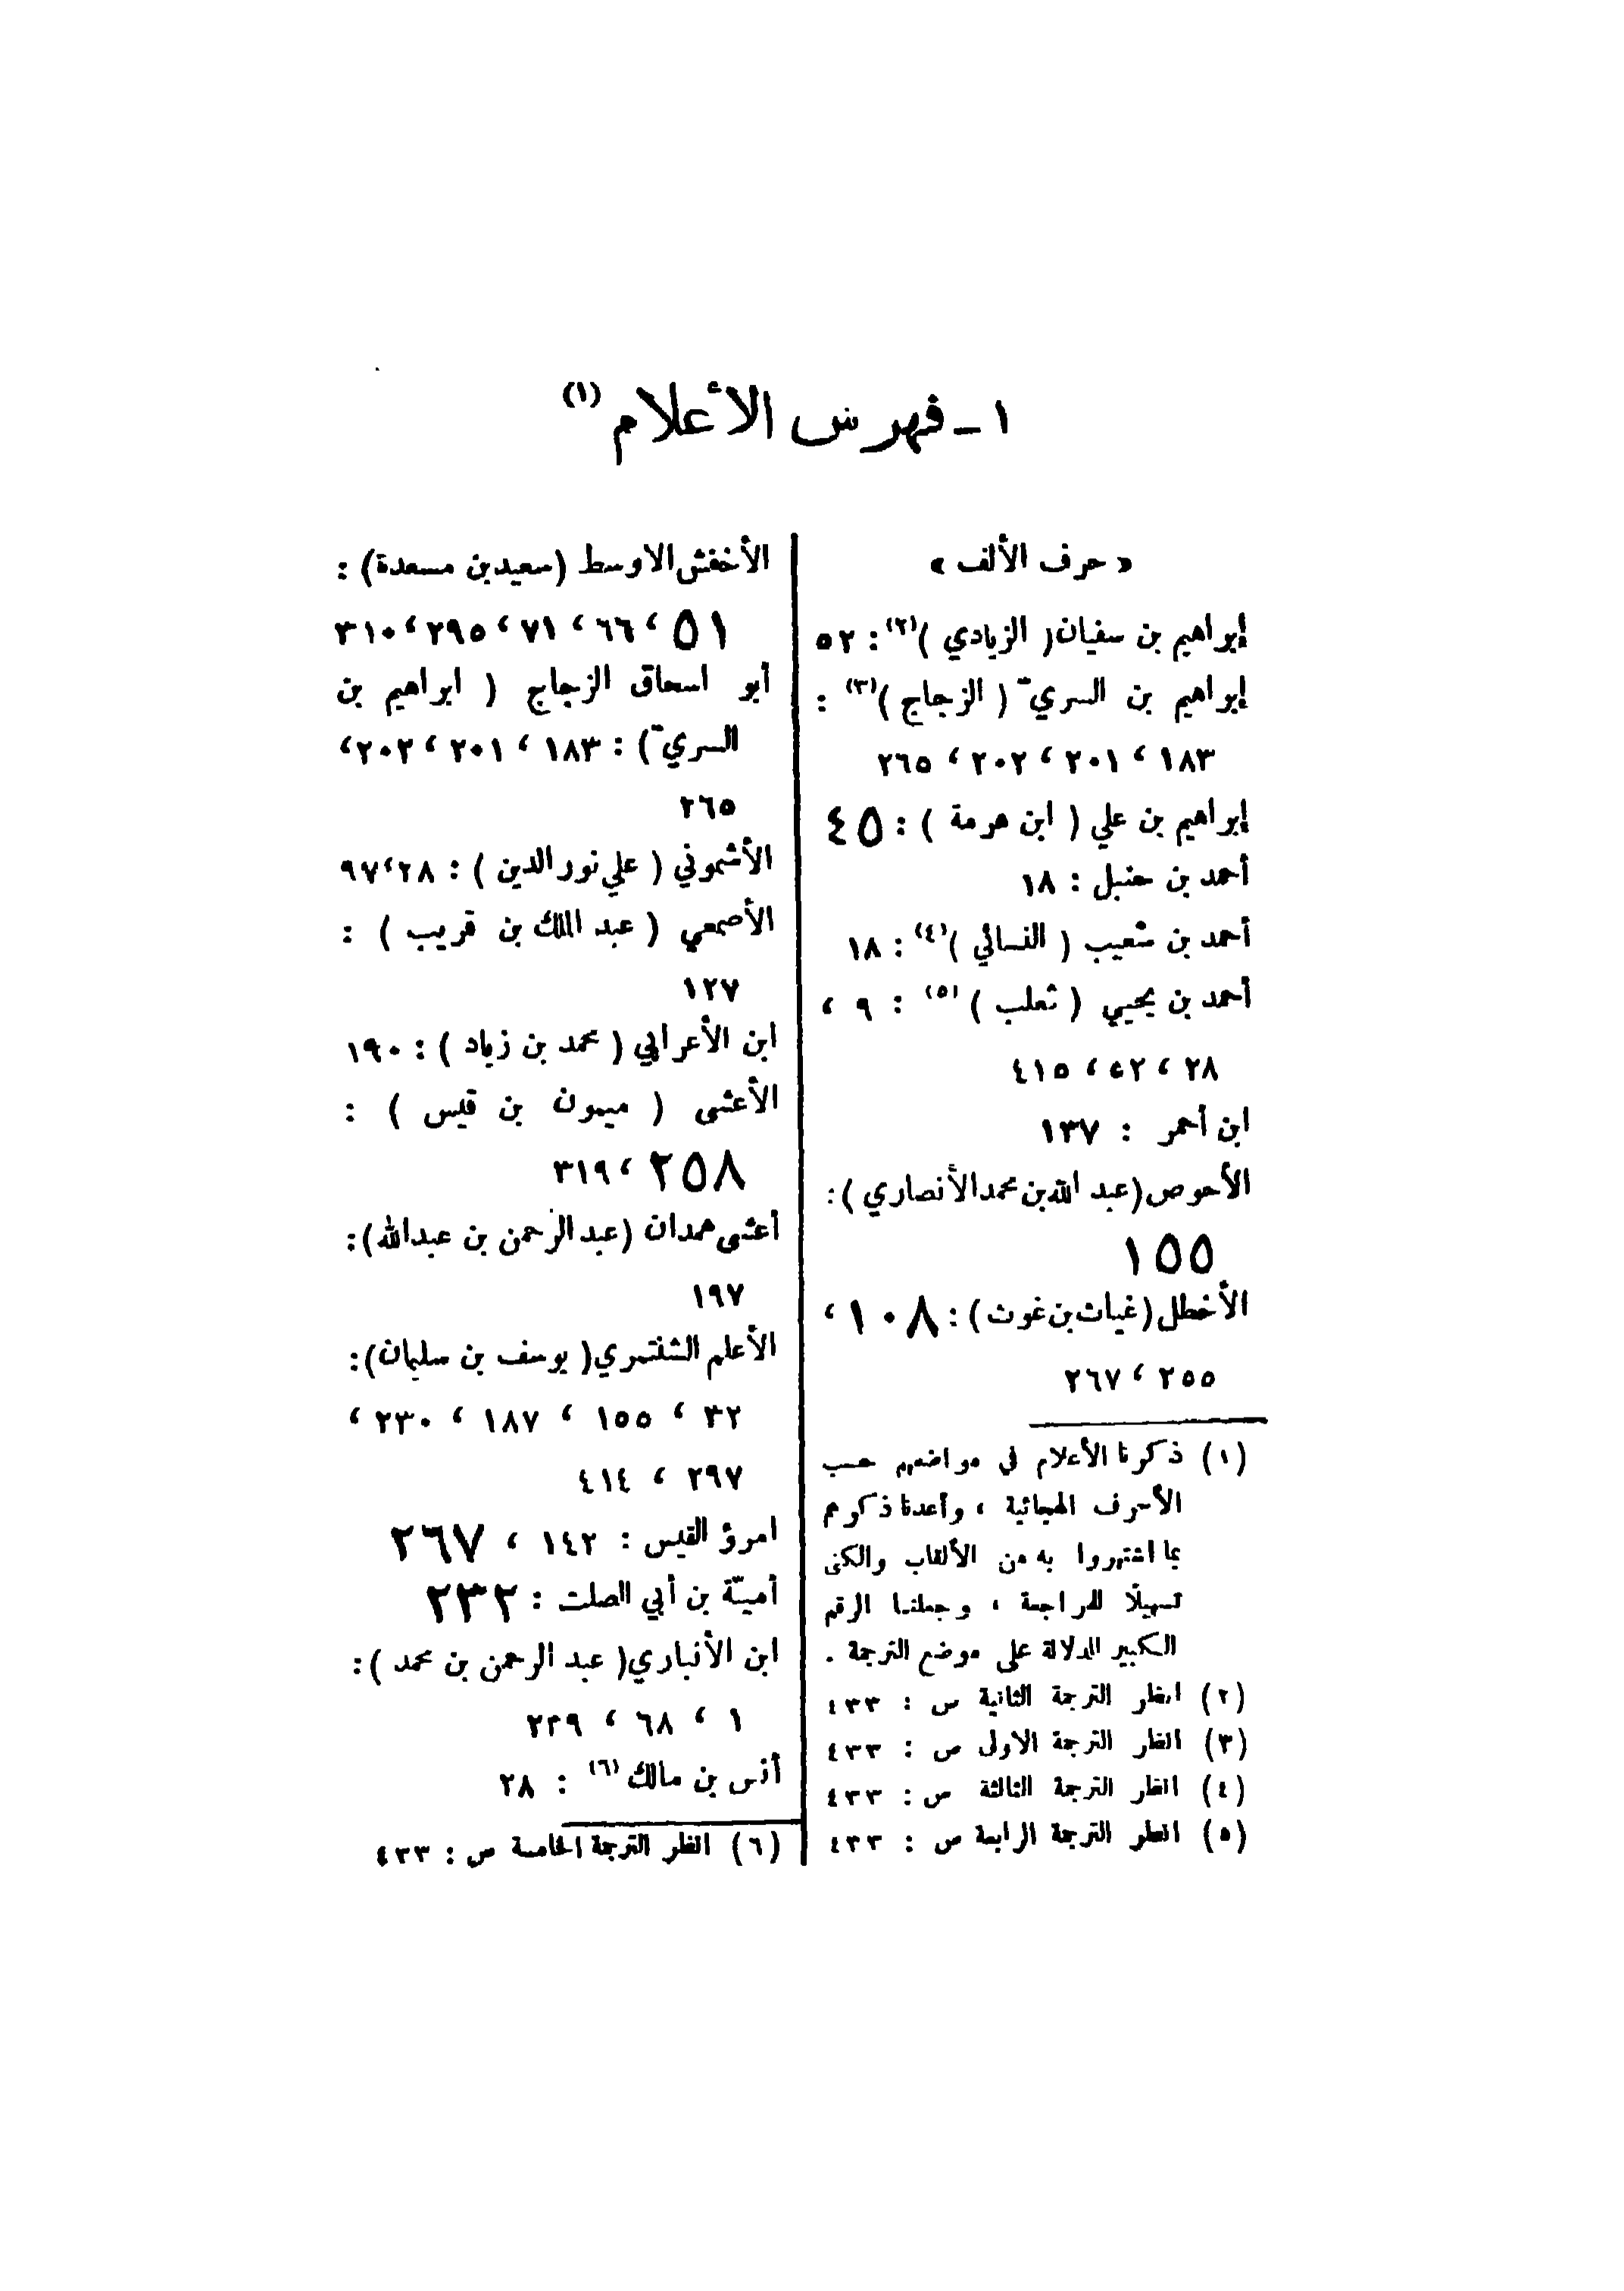 ١ - فهرس الأعلام (١)
« حرف الألف »
إبراهيم بن سفيان ( الزيادي )(٢) : ٥٢
إبراهيم بن السريّ ( الزجاج )(٣) :
١٨٣ ، ٢٠١ ، ٢٠٢ ، ٢٦٥
إبراهيم بن علي ( ابن هرمة ) : ٤٥
أحمد بن حنبل : ١٨
أحمد بن شعيب ( النسائي )(٤) : ١٨
أحمد بن يحيي ( ثعلب )(٥) : ٩ ،
٢٨ ، ٥٢ ، ٤١٥
ابن أحمر : ١٣٧
الأحوص (عبد الله بن محمد الأنصاري ) :
١٥٥
الأخطل (غياث بن غوث ) : ١٠٨ ،
٢٥٥ ، ٢٦٧
(١) ذكرنا الأعلام في مواضعهم حسب
الأحرف الهجائية ، وأعدنا ذكرهم
بما اشتهروا به من الألقاب والكنى
تسهيلاً للمراجعة ، وجعلنا الرقم
الكبير للدلالة على موضع الترجمة .
(٢) انظر الترجمة الثانية ص : ٤٣٣
(٣) انظر الترجمة الاولى ص : ٤٣٣
(٤) انظر الترجمة الثالثة ص : ٤٣٣
(٥) انظر الترجمة الرابعة ص : ٤٣٣
الأخفش الاوسط (سعيد بن مسعدة) :
٥١ ، ٦٦ ، ٧١ ، ٢٩٥ ، ٣١٠
أبو اسحاق الزجاج ( ابراهيم بن
السريّ ) : ١٨٣ ، ٢٠١ ، ٢٠٢ ،
٢٦٥
الأشموني ( علي نور الدين ) : ٢٨ ، ٩٧
الأصمعي ( عبد الملك بن قريب ) :
١٢٧
ابن الأعرابي ( محمد بن زياد ) : ١٩٠
الأعشى ( ميمون بن قيس ) :
٢٥٨ ، ٣١٩
أعشى همدان (عبد الرحمن بن عبدالله) :
١٩٧
الأعلم الشنتمري ( يوسف بن سليمان) :
٣٢ ، ١٥٥ ، ١٨٧ ، ٢٣٠ ،
٢٩٧ ، ٤١٤
امرؤ القيس : ١٤٢ ، ٢٦٧
أميّة بن أبي الصلت : ٢٣٢
ابن الأنباري ( عبد الرحمن بن محمد ) :
١ ، ٦٨ ، ٢٣٩
أنس بن مالك (٦) : ٢٨
(٦) انظر الترجمة الخامسة ص : ٤٣٣